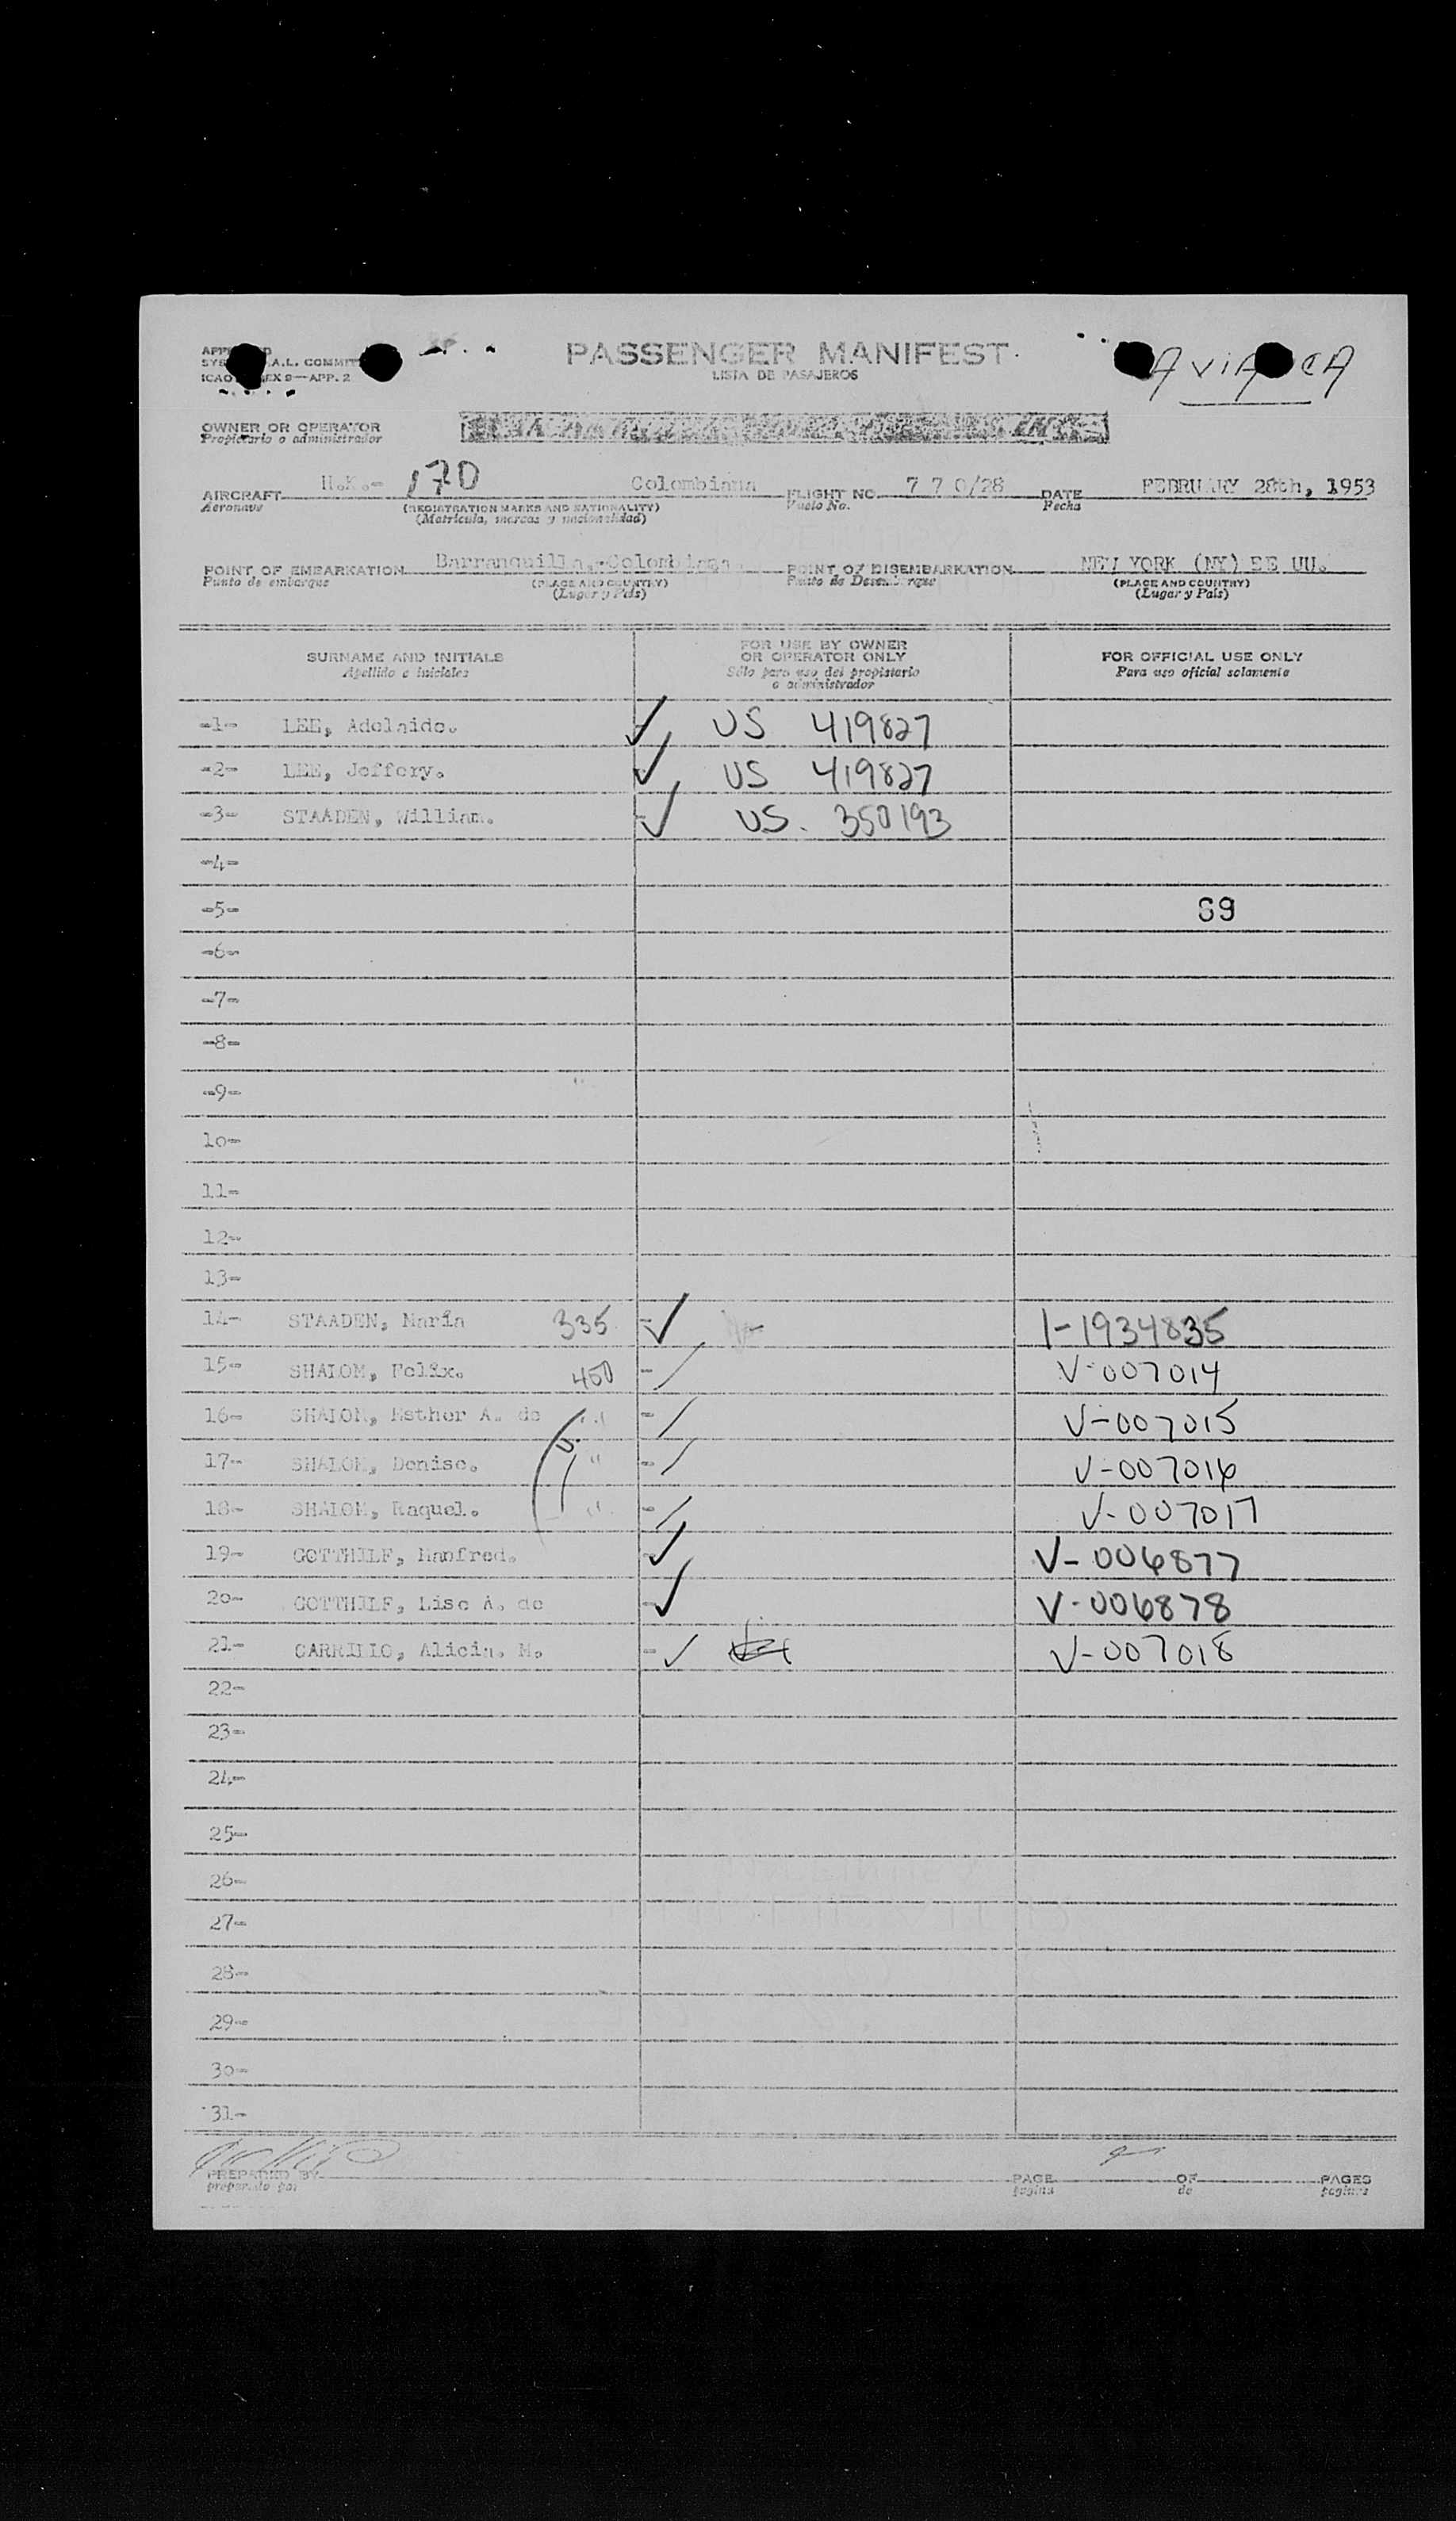 PASSENGER MANIFEST
LISTA DE PASAJEROS
AVIANCA
A.L. COMMIT
ICAO EX 9—APP. 2
OWNER OR OPERATOR
Propietario o administrador
AIRCRAFT H.K.- 170 Colombiana FLIGHT NO. 7 7 0/28 DATE FEBRUARY 28th, 1953
Aeronave (REGISTRATION MARKS AND NATIONALITY) Vuelo No. Fecha
(Matrícula, marcas y nacionalidad)
POINT OF EMBARKATION Barranquilla,-Colombiana POINT OF DISEMBARKATION NEW YORK (NY) EE UU.
Punto de embarque (PLACE AND COUNTRY) Punto de Desembarque (PLACE AND COUNTRY)
(Lugar y País) (Lugar y País)
SURNAME AND INITIALS FOR USE BY OWNER OR OPERATOR ONLY FOR OFFICIAL USE ONLY
Apellido e iniciales Sólo para uso del propietario o administrador Para uso oficial solamente
-1- LEE, Adelaide. US 419827
-2- LEE, Jeffery. US 419827
-3- STAADEN, William. US. 350193
-4-
-5- 69
-6-
-7-
-8-
-9-
10-
11-
12-
13-
14- STAADEN, María 335 - 1-1934835
15- SHALOM, Felix. 450 - V-007014
16- SHALOM, Esther A. de " - V-007015
17- SHALOM, Denise. " - V-007016
18- SHALOM, Raquel. " - V-007017
19- GOTTHILF, Manfred. - V-006877
20- GOTTHILF, Lise A. de - V-006878
21- CARRILLO, Alicia. M. - V-007018
22-
23-
24-
25-
26-
27-
28-
29-
30-
31-
PREPARED BY PAGE OF PAGES
preparado por pagina de paginas